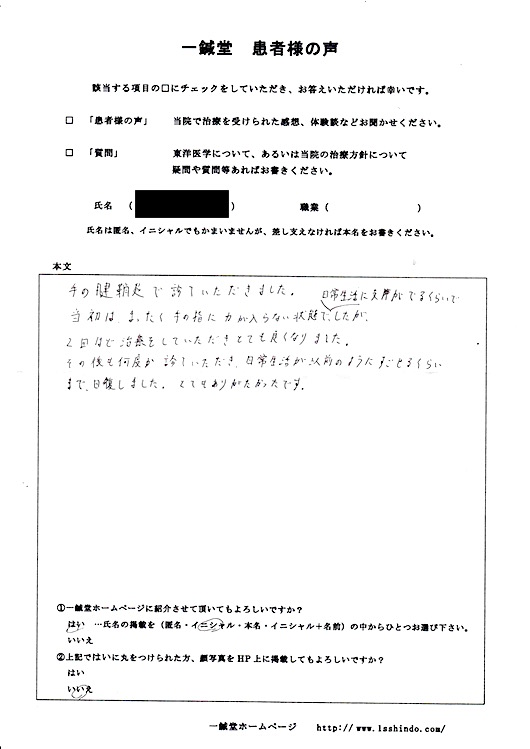 一鍼堂 患者様の声
該当する項目の□にチェックをしていただき、お答えいただければ幸いです。
□ 「患者様の声」 当院で治療を受けられた感想、体験談などお聞かせください。
□ 「質問」 東洋医学について、あるいは当院の治療方針について
疑問や質問等あればお書きください。
氏名 ( ) 職業 ( )
氏名は匿名、イニシャルでもかまいませんが、差し支えなければ本名をお書きください。
本文
手の腱鞘炎で診ていただきました。
日常生活に支障がでるくらいで
当初は、まったく手の指に力が入らない状態で、したが、
2回ほど治療をしていただきとても良くなりました。
その後も何度か診ていただき、日常生活が以前のようにすごせるくらい
まで、回復しました。とてもありがたかったです。
①一鍼堂ホームページに紹介させて頂いてもよろしいですか？
はい …氏名の掲載を（匿名・イニシャル・本名・イニシャル＋名前）の中からひとつお選び下さい。
いいえ
②上記ではいに丸をつけられた方、顔写真をHP上に掲載してもよろしいですか？
はい
いいえ
一鍼堂ホームページ http://www.1sshindo.com/